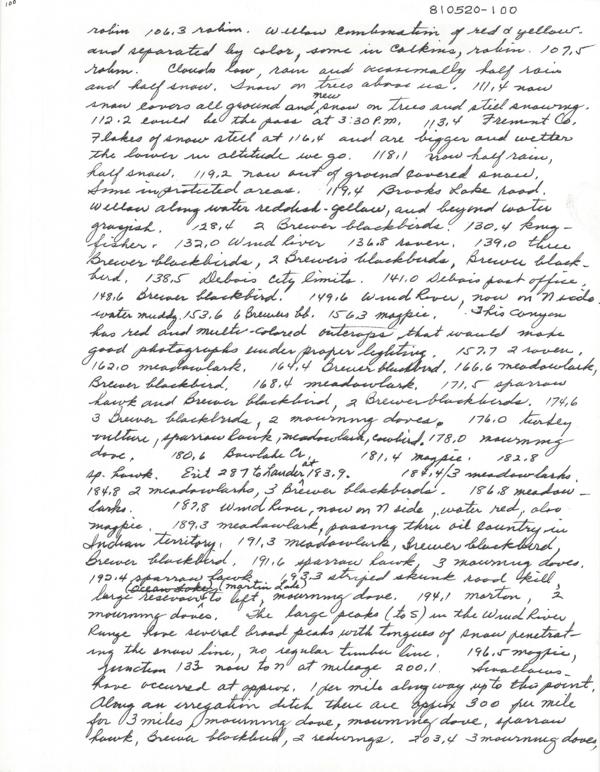 100
810520-100
robin 106.3 robin. Willow combination of red & yellow
and separated by color, some in catkins, robin. 107.5
robin. Clouds low, rain and occasionally half rain
and half snow. Snow on trees above us. 111.4 now
snow covers all ground and new snow on trees and still snowing.
112.2 could be the pass at 3:30 P.M. 113.4 Fremont Co.
Flakes of snow still at 116.4 and are bigger and wetter
the lower in altitude we go. 118.1 now half rain,
half snow. 119.2 now out of ground covered snow.
Some in protected areas. 119.4 Brooks Lake road.
Willow along water reddish-yellow, and beyond water
grayish. 128.4 2 Brewer blackbirds. 130.4 king-
fisher. 132.0 Wind River 136.8 raven. 139.0 three
Brewer blackbirds, 2 Brewer's blackbirds, Brewer black-
bird. 138.5 Debois city limits. 141.0 Debois post office.
148.6 Brewer blackbird. 149.6 Wind River, now on N side
water muddy. 153.6 6 Brewers bb. 156.3 magpie. This canyon
has red and multi-colored outcrops that would make
good photographs under proper lighting. 157.7 2 raven.
162.0 meadowlark. 164.4 Brewer blackbird. 166.6 meadowlark,
Brewer blackbird. 168.4 meadowlark. 171.5 sparrow
hawk and Brewer blackbird, 2 Brewer blackbirds. 174.6
3 Brewer blackbirds, 2 mourning doves. 176.0 turkey
vulture, sparrow hawk, meadowlark, cowbird. 178.0 mourning
dove. 180.6 Bowlake Cr. 181.4 magpie. 182.8
sp. hawk. Exit 287 to Lander at 183.9. 184.4 3 meadowlarks.
184.8 2 meadowlarks, 3 Brewer blackbirds. 186.8 meadow-
larks. 187.8 Wind River, now on N side, water red, also
magpie. 189.3 meadowlark, passing thru oil country in
Indian territory. 191.3 meadowlark, Brewer blackbird,
Brewer blackbird. 191.6 sparrow hawk, 3 mourning doves.
192.4 sparrow hawk 693.3 striped skunk road kill,
(Ocean Lake) (Morton Lake)
large resevoir to left, mourning dove. 194.1 morton, 2
mourning doves. The large peaks (to S) in the Wind River
Range have several broad peaks with tongues of snow penetrat-
ing the snow line, no regular timber line. 196.5 magpie,
Junction 133 now to N at mileage 200.1. Swallows
have occurred at approx. 1 per mile along way up to this point.
Along an irregation ditch there are approx 300 per mile
for 3 miles, mourning dove, mourning dove, sparrow
hawk, Brewer blackbird, 2 redwings. 203.4 3 mourning doves,